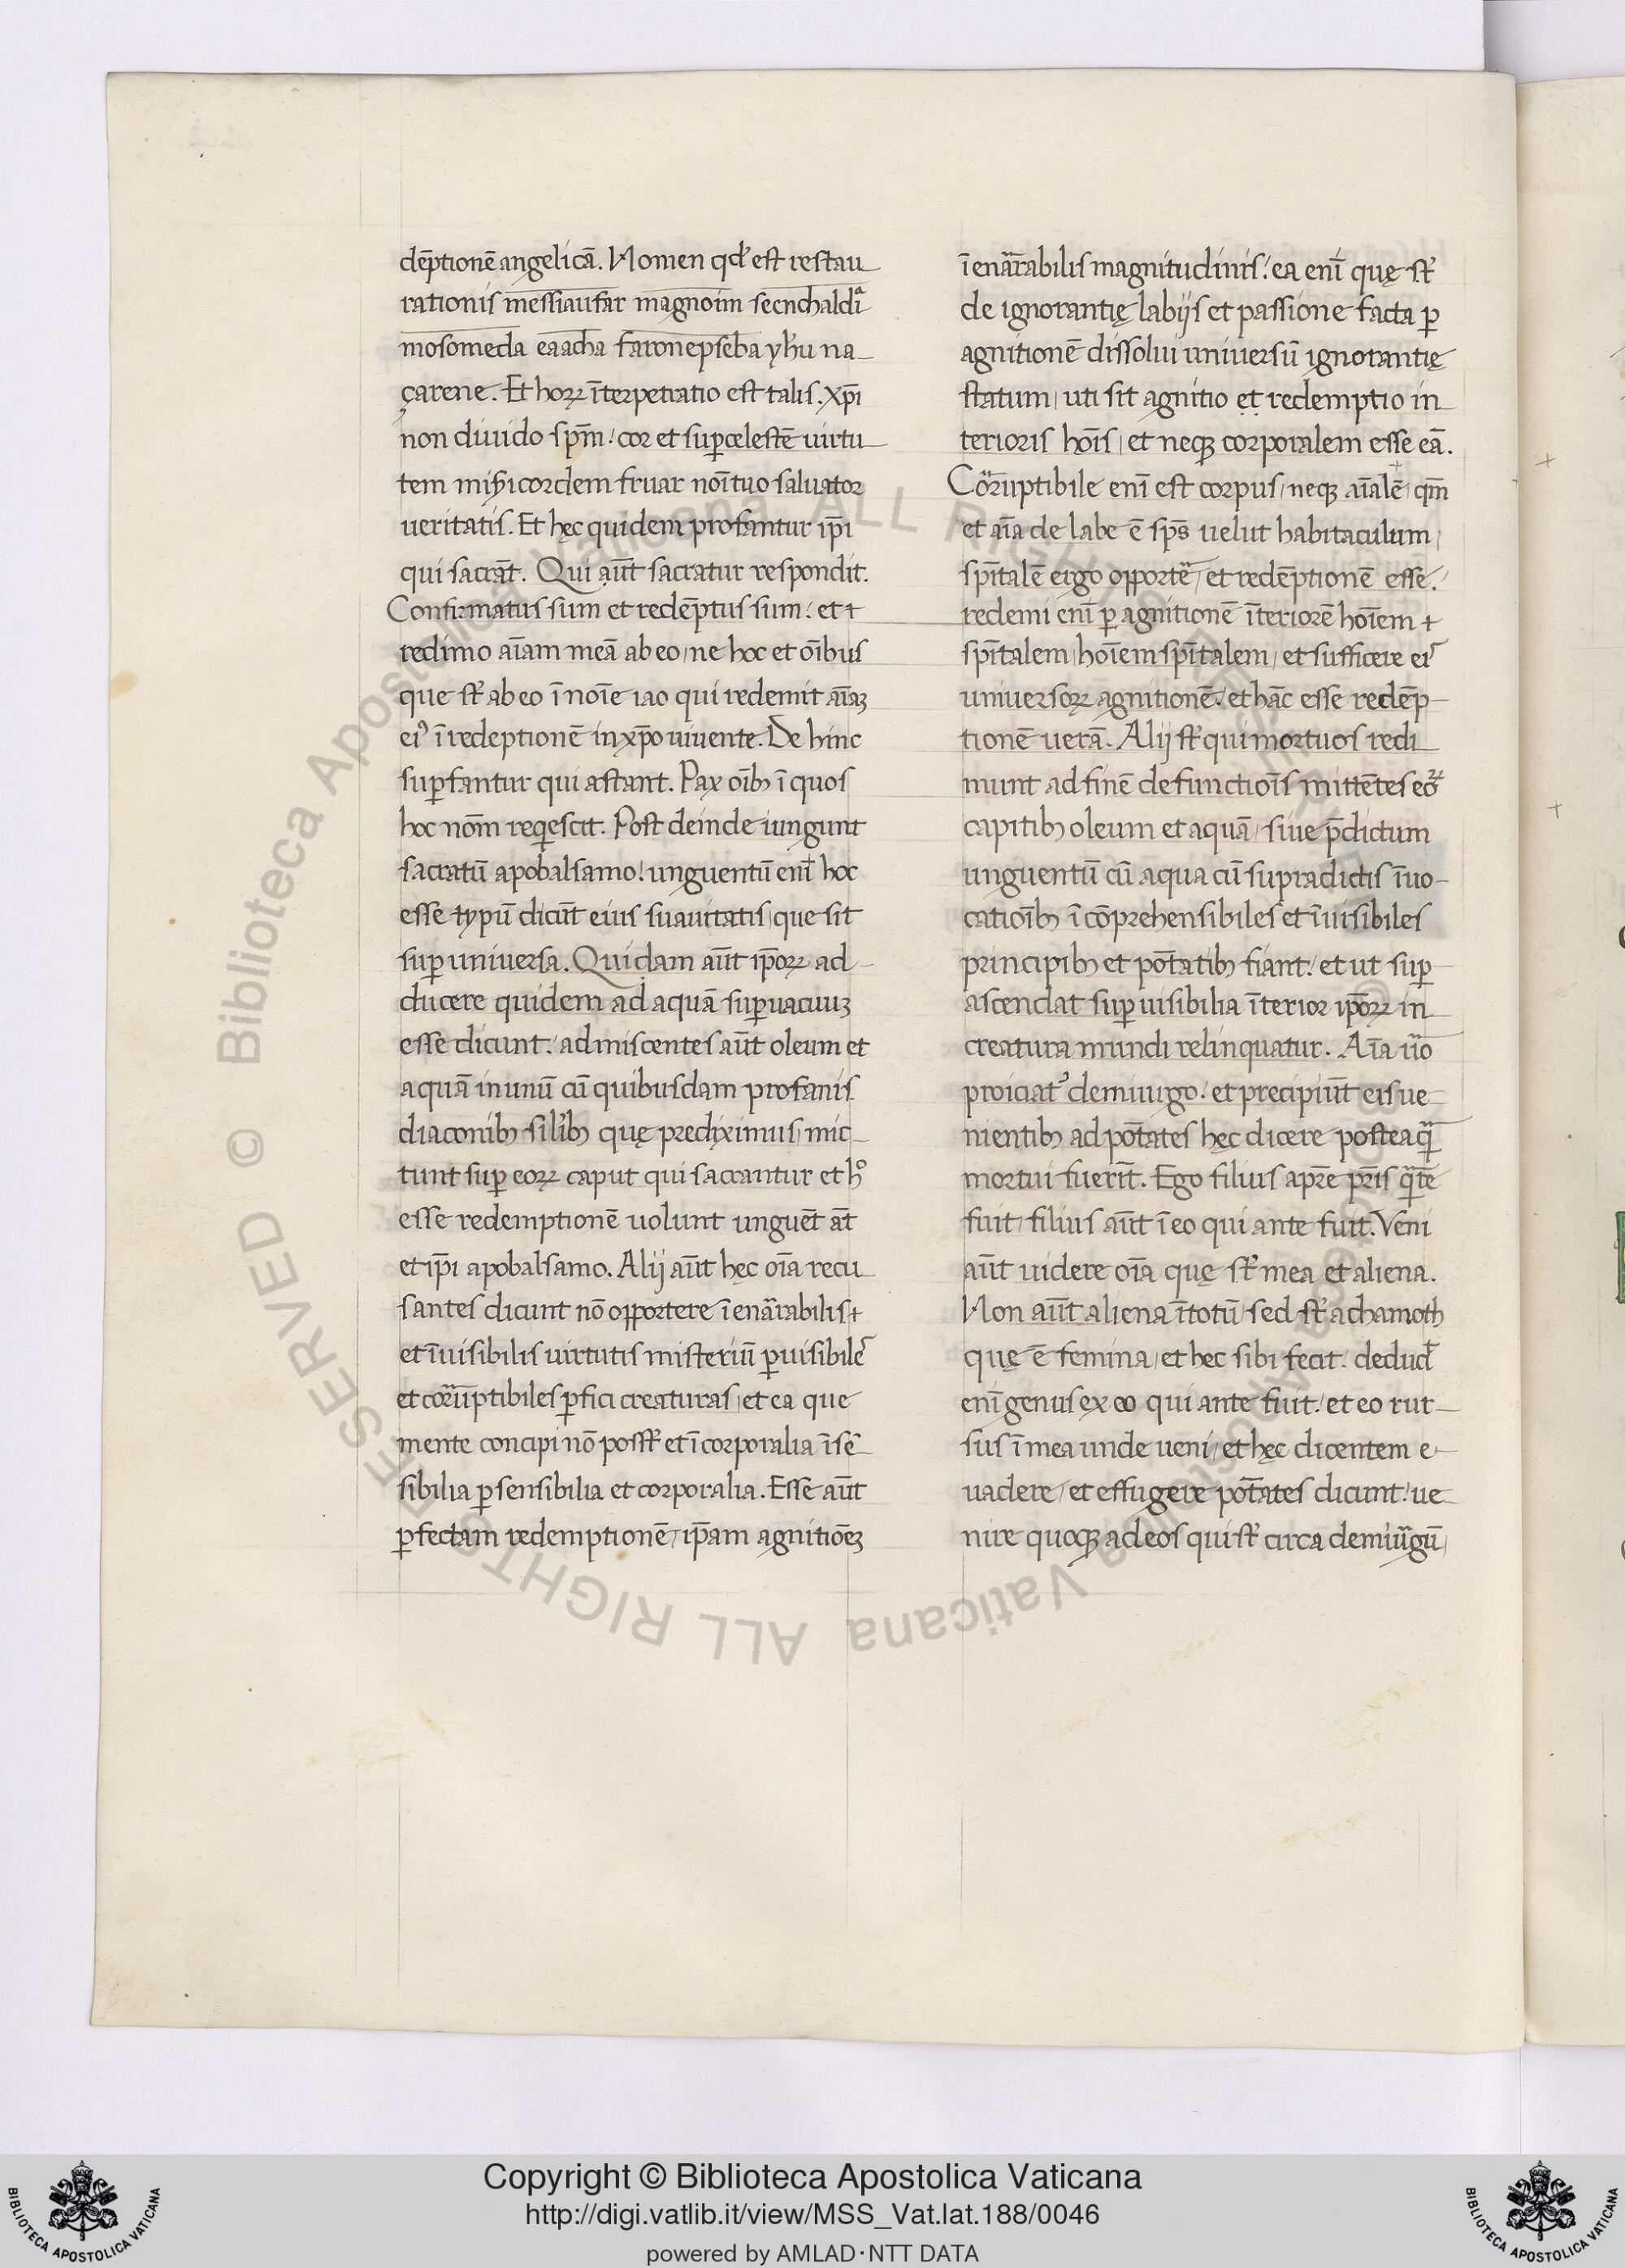 dēptionē angelicā. Nomen qd' est restau
rationis messiaufar magnoim secnchaldi
mosomeda eaacha faronepseba yhu na
çarene. Et horꝝ īterpetratio est talis. xp̄i
non diuido sp̄m: cor et suꝑcelestē uirtu
tem miẜicordem fruar noī tuo saluator
ueritatis. Et hęc quidem profantur ip̄i
qui sacrāt. Qui aūt sacratur respondit.
Confirmatus sum et redēptus sum: et +
redimo aīam meā ab eo, ne hoc et oībus
que st̄ ab eo ī noīe iao qui redemit aīaꝫ
ei' ī redeptionē in xp̄o uiuente. De hinc
suꝑfantur qui astant. Pax oīb; ī quos
hoc nom̄ reqescit. Post deinde iungunt
sacratū apobalsamo: unguentū enī hoc
esse typū dicūt eius suauitatis, que sit
suꝑ uniuersa. Quidam aūt ip̄orꝝ ad
ducere quidem ad aquā suꝑuacuuꝫ
esse dicunt: admiscentes aūt oleum et
aquā in unū cū quibusdam profanis
diaconib; silib; quę prediximus, mic
tunt suꝑ eorꝝ caput qui sacrantur et h°
esse redemptionē uolunt unguēt āt
et ip̄i apobalsamo. Alij aūt hęc oīa recu
santes dicunt nō opportere ī enarrabilis +
et īuisibilis uirtutis misteriū ꝑ uisibile
et corruptibiles ꝑfici creaturas, et ea que
mente concipi nō posst̄ et ī corporalia īsē
sibilia ꝑ sensibilia et corporalia. Esse aūt
ꝑfectam redemptionē, ip̄am agnitiōeꝫ
ī enarrabilis magnitudinis: ea enī quę st̄
de ignorantię labijs et passione facta ꝑ
agnitionē dissolui uniuersū ignorantię
statum, uti sit agnitio et redemptio in
terioris hoīs, et neqꝫ corporalem esse eā.
Corruptibile enī est corpus, neqꝫ aīalē, qm̄
et aīa de labe ē sp̄s uelut habitaculum,
sp̄italē ergo opporte, et redēptionē esse:
redemi enī ꝑ agnitionē īteriorē hoīem +
sp̄italem, hoīem sp̄italem, et sufficere ei
uniuersorꝝ agnitionē: et hāc esse redēp
tionē uerā. Alij st̄ qui mortuos redi
munt ad finē defunctioīs mittētes eoꝝ
capitib; oleum et aquā, siue p̄dictum
unguentū cū aqua cū supradictis īuo
catioīb; ī cōprehensibiles et īuisibiles
principib; et potātib; fiant: et ut suꝑ
ascendat suꝑ uisibilia īterior ip̄orꝝ in
creatura mundi relinquatur. Aīa uo
proiciat' demiurgo: et precipiūt eis ue
nientib; ad potātes hęc dicere posteaq
mortui fuerīt. Ego filius a pr̄e pr̄is q̄ āte
fuit, filius aūt ī eo qui ante fuit. Veni
aūt uidere oīa quę st̄ mea et aliena.
Non aūt aliena ī totū, sed st̄ achamoth
quę ē femina, et hec sibi fecit: deduc̄
enī genus ex eo qui ante fuit: et eo rur
sus ī mea unde ueni, et hęc dicentem e
uadere, et effugere potātes dicunt: ue
nire quoqꝫ ad eos qui st̄ circa demiurgū,
Copyright © Biblioteca Apostolica Vaticana
http://digi.vatlib.it/view/MSS_Vat.lat.188/0046
powered by AMLAD·NTT DATA